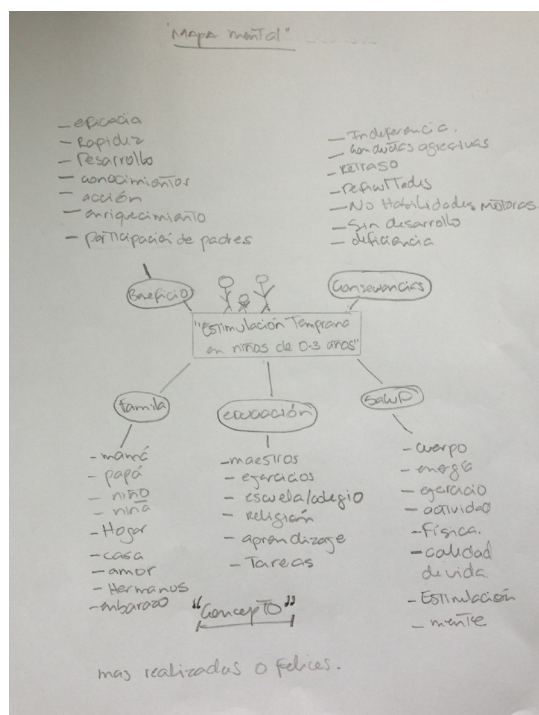 "Mapa mental"
- eficacia
- Rapidez
- Desarrollo
- conocimientos
- acción
- enriquecimiento
- participación de padres
- Indeferencia.
- conductas agresivas
- retraso
- Deficultades
- No Habilidades motoras
- Sin desarrollo
- deficiencia
Beneficio
Consecuencias
"Estimulación Temprana
en niños de 0-3 años"
familia
educación
Salud
- mamá
- papá
- niño
- niña
- Hogar
- casa
- amor
- Hermanos
- embarazo
- maestros
- ejercicios
- escuela/colegio
- religión
- aprendizaje
- Tareas
- cuerpo
- energía
- ejercicio
- actividad
- Física.
- calidad
de vida
- Estimulación
- mente
"Concepto"
mas realizadas o felices.